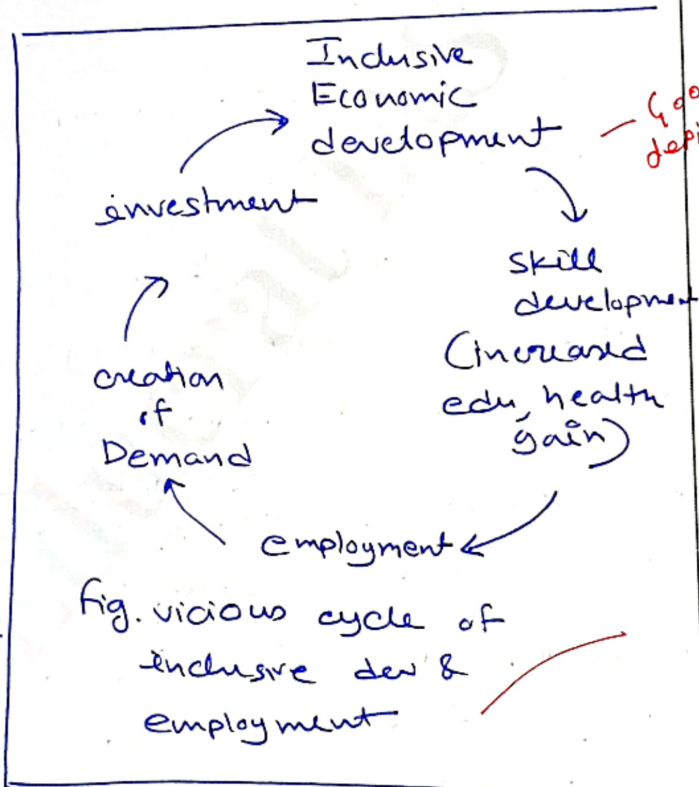 Inclusive
Economic
development
investment
skill
development
(increased
edu, health
gain)
creation
of
Demand
employment
fig. vicious cycle of
inclusive dev &
employment